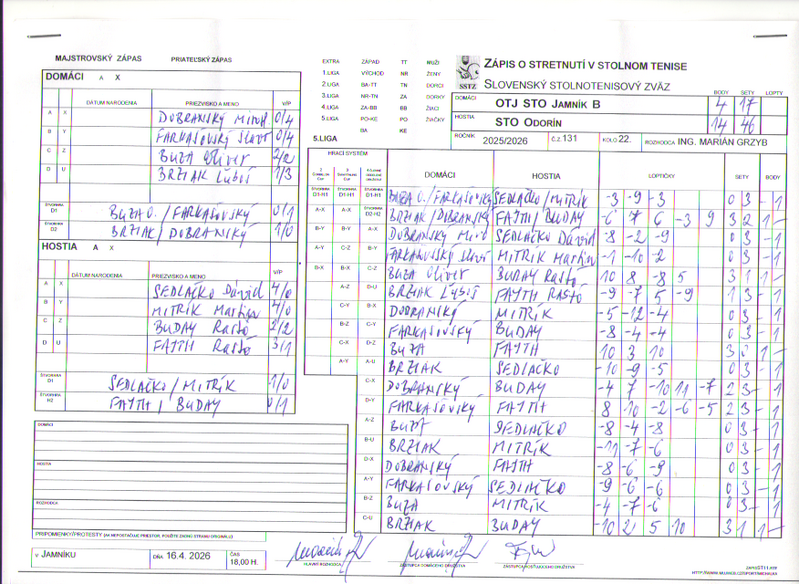 MAJSTROVSKÝ ZÁPAS PRIATEĽSKÝ ZÁPAS
DOMÁCI A X
DÁTUM NARODENIA PRIEZVISKO A MENO V/P
A X DOBRANSKÝ MIROSL 0/4
B Y FARKAŠOVSKÝ SLAVO 0/4
C Z BUZA OLIVER 2/2
D U BRŽIAK ĽUBIŠ 1/3
ŠTVORHRA D1 BUZA O. / FARKAŠOVSKÝ 0/1
ŠTVORHRA D2 BRŽIAK / DOBRANSKÝ 1/0
HOSTIA A X
DÁTUM NARODENIA PRIEZVISKO A MENO V/P
A X SEDLAČKO Dávid 4/0
B Y MITRÍK Martin 4/0
C Z BUDAY RASŤO 2/2
D U FAJTH RASŤO 3/1
ŠTVORHRA D1 SEDLAČKO / MITRÍK 1/0
ŠTVORHRA D2 FAJTH / BUDAY 0/1
DOMÁCI
HOSTIA
ROZHODCA
PRIPOMIENKY/PROTESTY
V JAMNÍKU DŇA 16.4. 2026 ČAS 18,00 H.
EXTRA ZÁPAD TT MUŽI
1.LIGA VÝCHOD NR ŽENY
2.LIGA BA-TT TN DORCI
3.LIGA NR-TN ZA DORKY
4.LIGA ZA-BB BB ŽIACI
5.LIGA PO-KE PO ŽIAČKY
BA KE
5.LIGA
SSTZ
ZÁPIS O STRETNUTÍ V STOLNOM TENISE
SLOVENSKÝ STOLNOTENISOVÝ ZVÄZ
BODY SETY LOPTY
DOMÁCI OTJ STO JAMNÍK B 4 17
HOSTIA STO ODORÍN 14 46
ROČNÍK 2025/2026 Č.Z 131 KOLO 22. ROZHODCA ING. MARIÁN GRZYB
HRACÍ SYSTÉM DOMÁCI HOSTIA LOPTIČKY SETY BODY
BUZA O. / FARKAŠOVSKÝ SEDLAČKO / MITRÍK -3 -9 -3 0 3 - 1
BRŽIAK / DOBRANSKÝ FAJTH / BUDAY -6 7 6 -3 9 3 2 1 -
DOBRANSKÝ Miro SEDLAČKO Dávid -8 -2 -9 0 3 - 1
FARKAŠOVSKÝ Slavo MITRÍK Martin -1 -10 -2 0 3 - 1
BUZA Oliver BUDAY RASŤO 10 8 -8 5 3 1 1 -
BRŽIAK ĽUBIŠ FAJTH RASŤO -9 -7 5 -9 1 3 - 1
DOBRANSKÝ MITRÍK -5 -12 -4 0 3 - 1
FARKAŠOVSKÝ BUDAY -8 -4 -4 0 3 - 1
BUZA FAJTH 10 3 10 3 0 1 -
BRŽIAK SEDLAČKO -10 -9 -5 0 3 - 1
DOBRANSKÝ BUDAY -4 7 -10 11 -7 2 3 - 1
FARKAŠOVSKÝ FAJTH 8 10 -2 -6 -5 2 3 - 1
BUZA SEDLAČKO -8 -4 -8 0 3 - 1
BRŽIAK MITRÍK -11 -7 -6 0 3 - 1
DOBRANSKÝ FAJTH -8 -6 -9 0 3 - 1
FARKAŠOVSKÝ SEDLAČKO -9 -6 -6 0 3 - 1
BUZA MITRÍK -4 -7 -6 0 3 - 1
BRŽIAK BUDAY -10 2 5 10 3 1 1 -